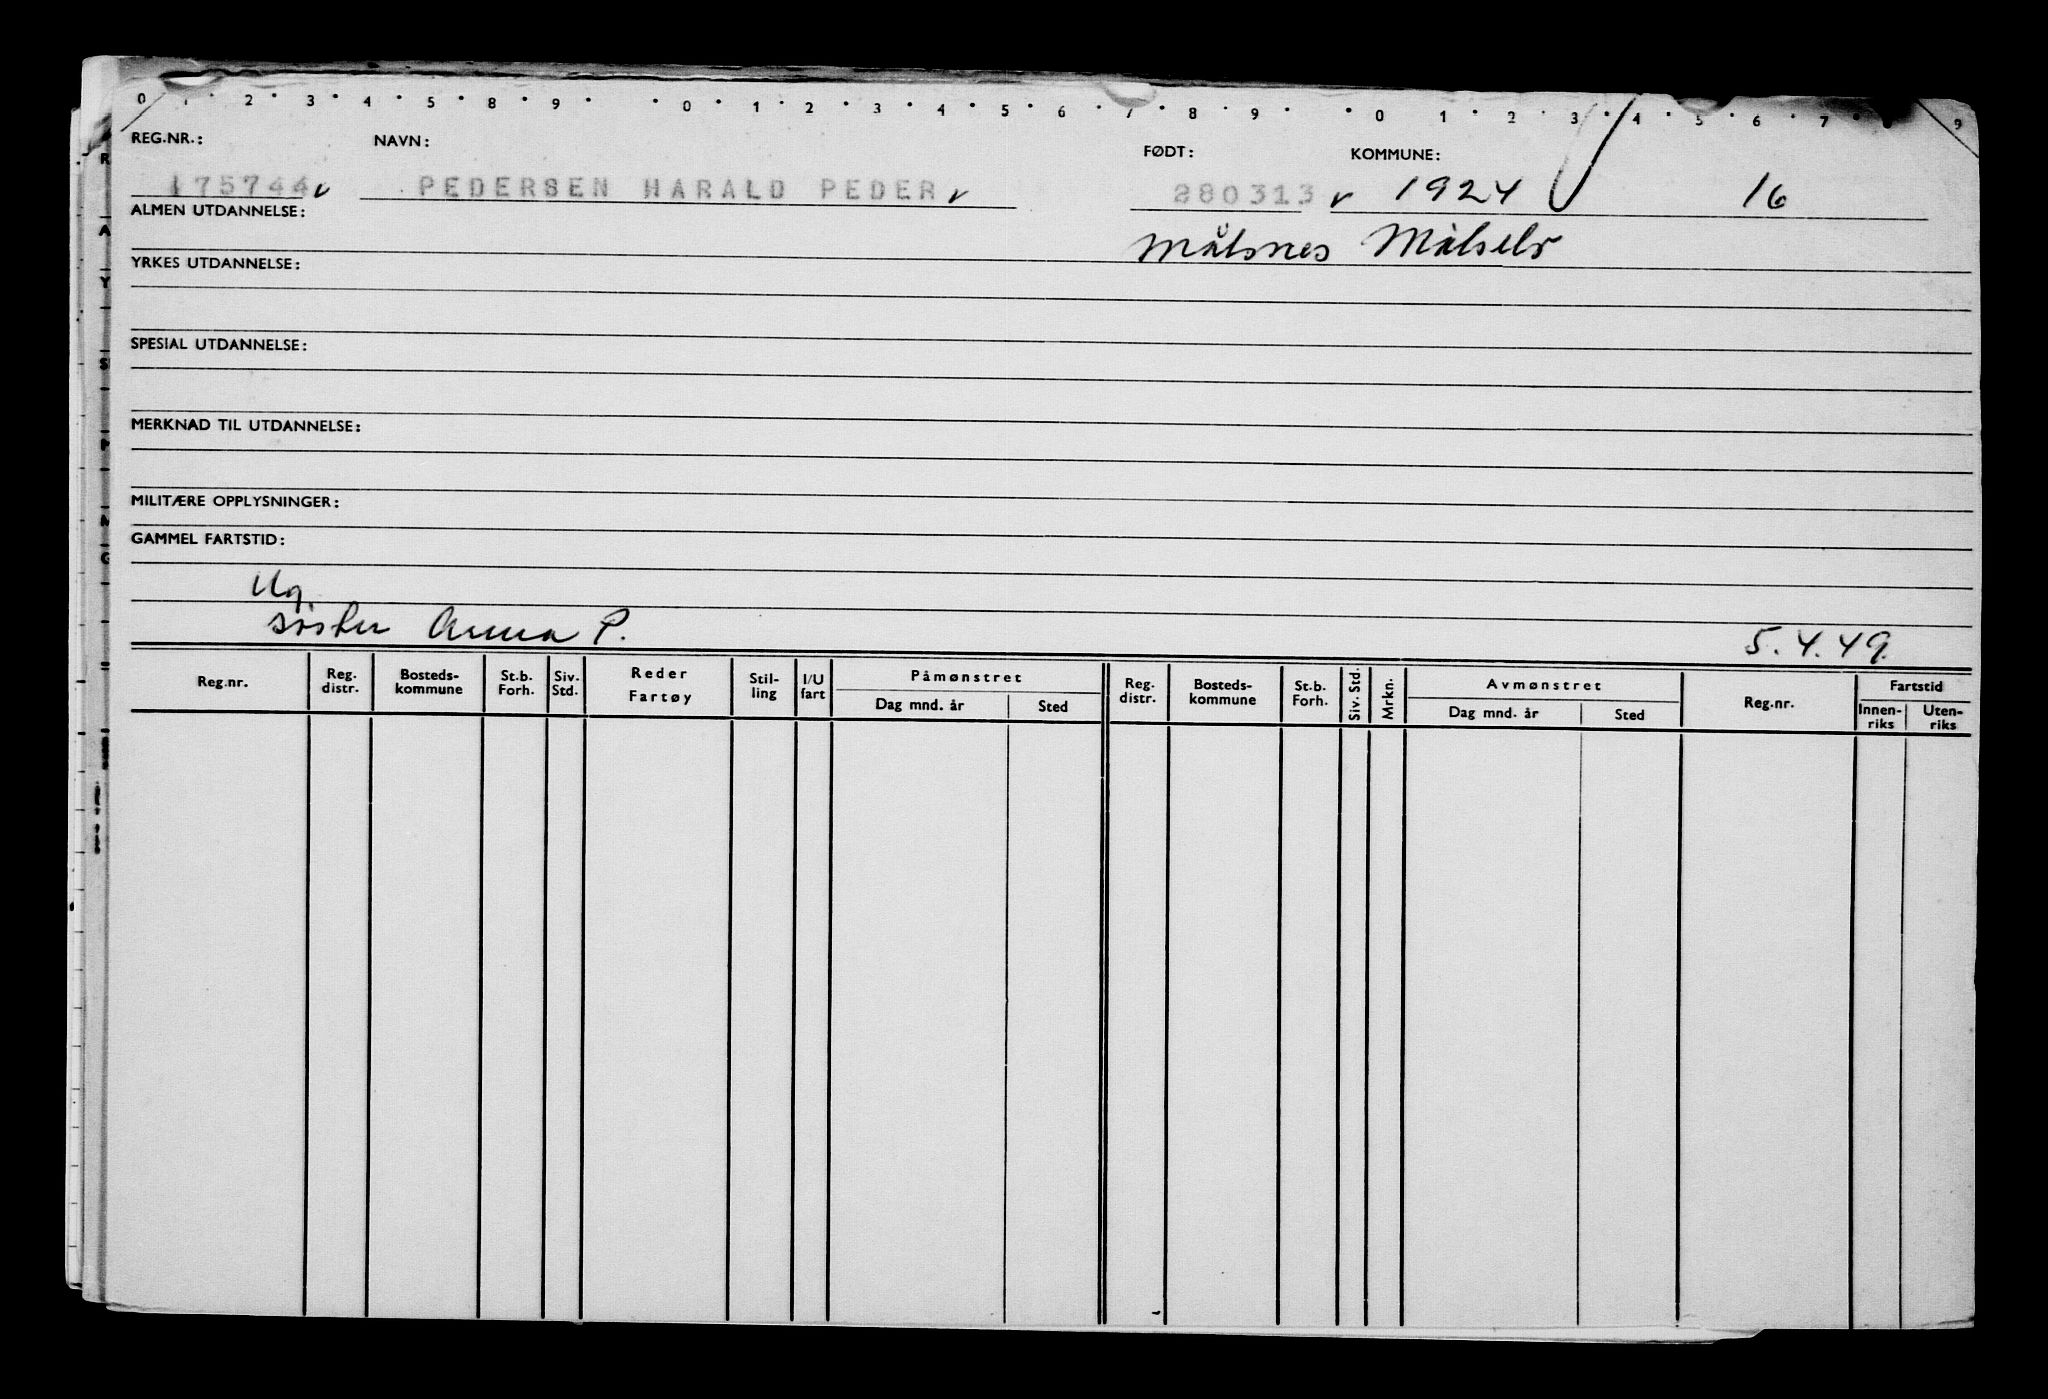 0 1 2 3 4 5 8 9 0 1 2 3 4 5 6 7 8 9 0 1 2 3 4 5 6 7 9
REG.NR.: NAVN: FØDT: KOMMUNE:
175744 v PEDERSEN HARALD PEDER v 280313 v 1924 16
ALMEN UTDANNELSE: Målsnes Målselv
YRKES UTDANNELSE:
SPESIAL UTDANNELSE:
MERKNAD TIL UTDANNELSE:
MILITÆRE OPPLYSNINGER:
GAMMEL FARTSTID:
Ug.
søster Anna P. 5.4.49.
Reg.nr. Reg. distr. Bosteds-kommune St.b. Forh. Siv. Std. Reder Fartøy Stil-ling I/U fart Påmønstret Dag mnd. år Sted Reg. distr. Bosteds-kommune St.b. Forh. Siv. Std. Mrkn. Avmønstret Dag mnd. år Sted Reg.nr. Fartstid Innen-riks Uten-riks